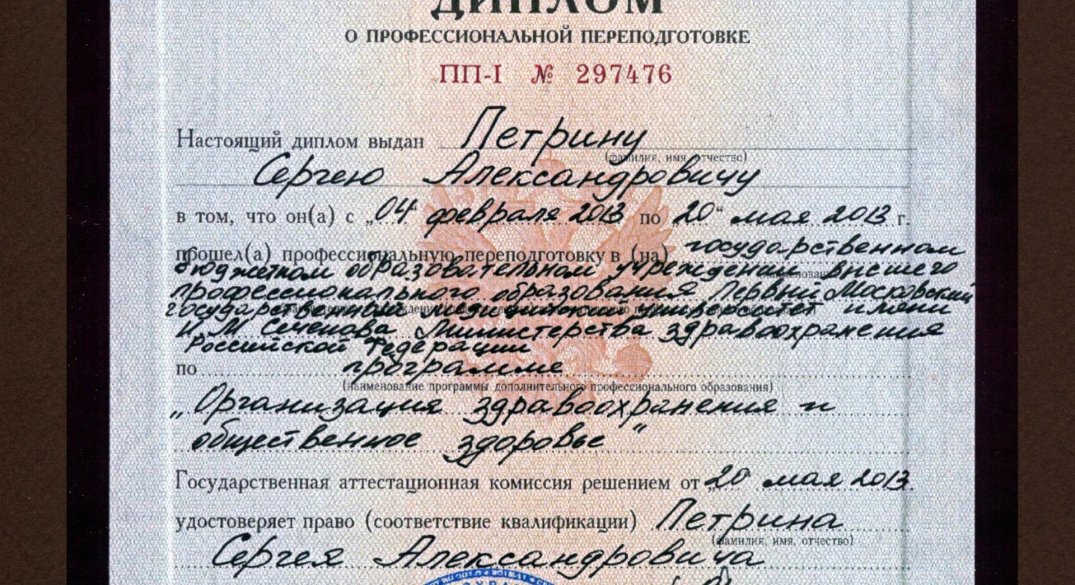 ДИПЛОМ
О ПРОФЕССИОНАЛЬНОЙ ПЕРЕПОДГОТОВКЕ
ПП-I № 297476
Настоящий диплом выдан Петрину
(фамилия, имя, отчество)
Сергею Александровичу
в том, что он(а) с „04 февраля 2013 по „20“ мая 2013 г.
прошел(а) профессиональную переподготовку в (на) государственном
бюджетном образовательном учреждении высшего
профессионального образования Первый Московский
государственный медицинский университет имени
И.М Сеченова Министерства здравоохранения
Российской Федерации
по программе
(наименование программы дополнительного профессионального образования)
„Организация здравоохранения и
общественное здоровье“
Государственная аттестационная комиссия решением от „20 мая 2013
удостоверяет право (соответствие квалификации) Петрина
(фамилия, имя, отчество)
Сергея Александровича